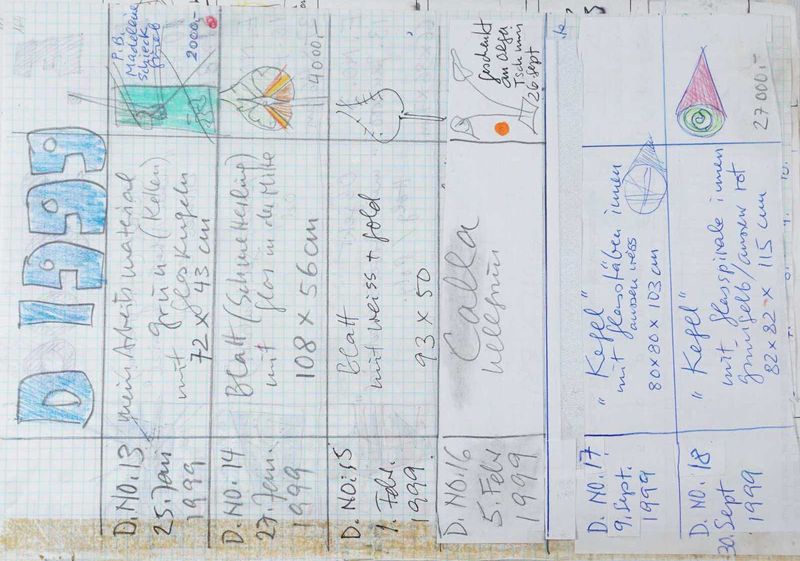 D 1999
D. NO. 13
25. Jan
1999
mein Arbeitsmaterial
grün (Kolen)
mit Glaskugeln
72 x 43 cm
P.B.
Madeleine
2000.-
D. NO. 14
27. Jan.
1999
Blatt (Schmetterling)
mit Glas in der Mitte
108 x 56 cm
4000.-
D. NO: 15
1. Feb.
1999
Blatt
mit Weiss + Gold
93 x 50
D. NO. 16
5. Feb.
1999
Calla
hellgrün
geschenkt
an Olga
26 Sept
D. NO. 17
9. Sept.
1999
"Kegel"
mit Glasstäben innen
aussen weiss
80 x 80 x 103 cm
D. NO. 18
30. Sept
1999
"Kegel"
mit Glasspirale innen
grüngelb/aussen rot
82 x 82 x 115 cm
27000.-